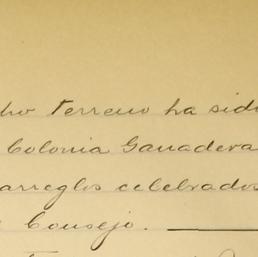 cho terreno ha sido
Colonia Ganadera
arreglos celebrados
Consejo.